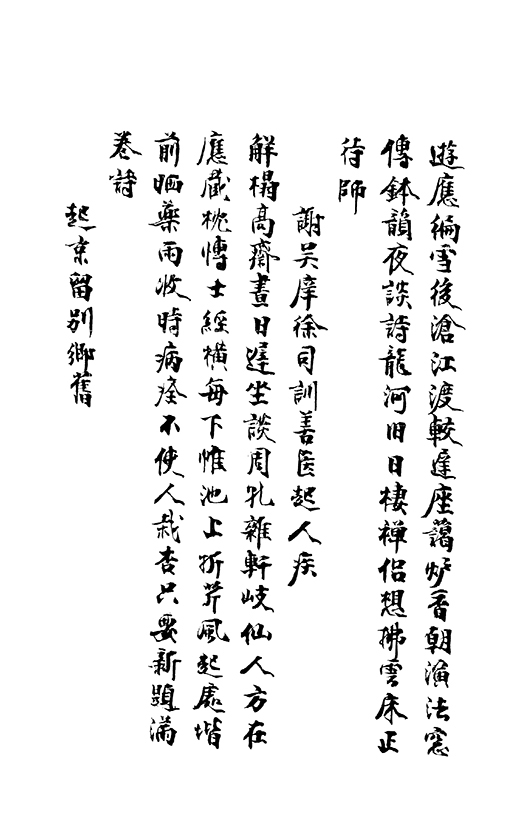 遊應徧雪後滄江渡較遲座藹炉香朝演法窓
傳鉢韻夜談詩龍河旧日棲禅侣想拂雲床正
待師
謝吴庠徐司訓善医起人疾
解榻高齋晝日遲坐談周孔雜軒岐仙人方在
應藏枕愽士經横每下帷池上折芹風起處堦
前晒藥雨收時病痊不使人栽杏只要新題满
卷詩
起京留别鄉舊